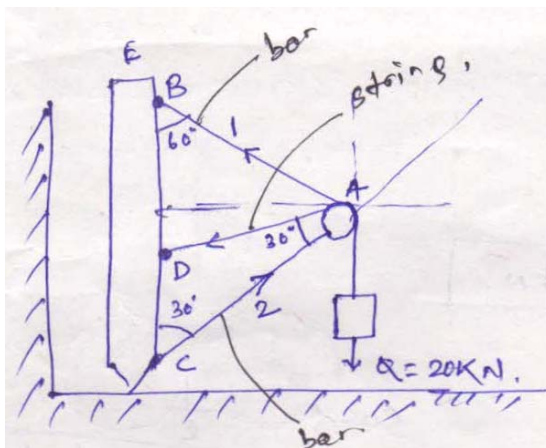 bar
string.
E
B
60°
1
A
30°
D
30°
2
C
Q = 20KN.
bar